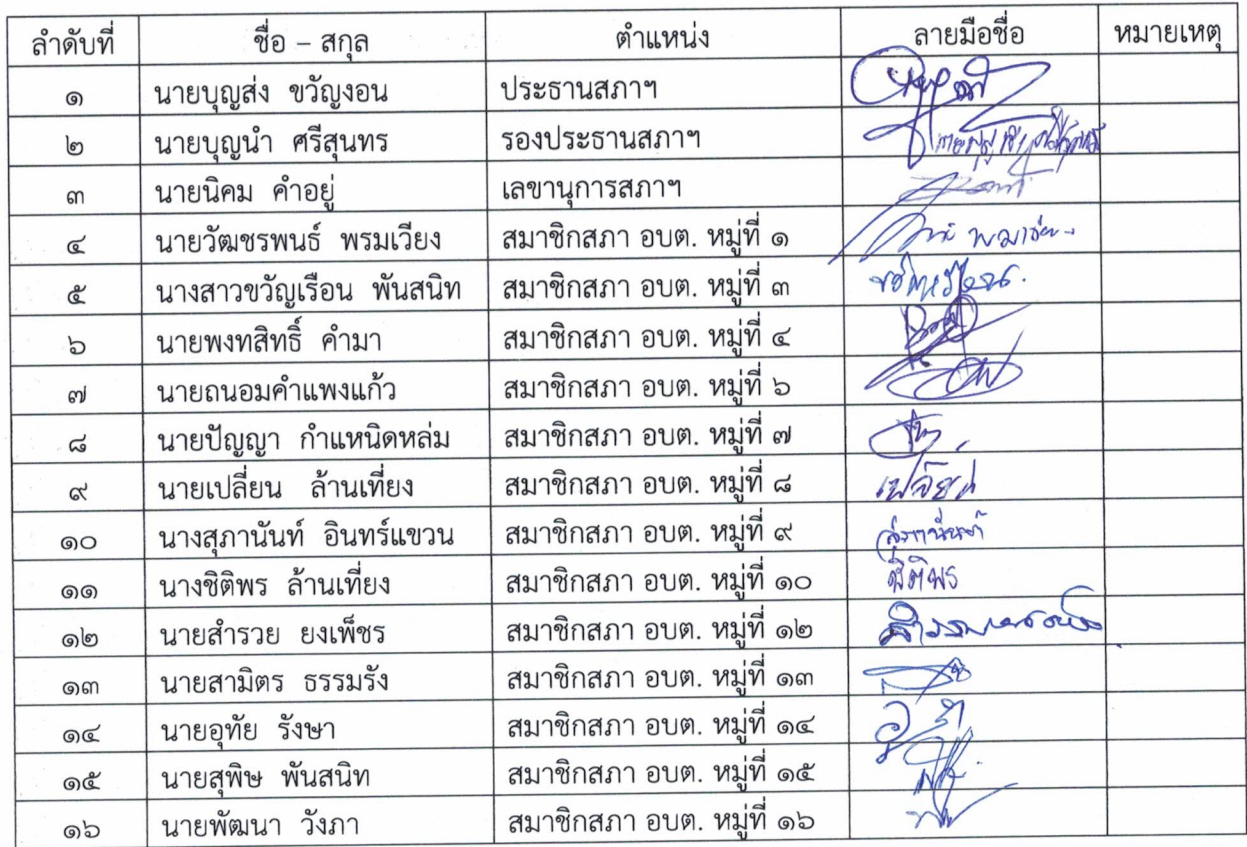 ลำดับที่ ชื่อ – สกุล ตำแหน่ง ลายมือชื่อ หมายเหตุ
๑ นายบุญส่ง ขวัญงอน ประธานสภาฯ
๒ นายบุญนำ ศรีสุนทร รองประธานสภาฯ
๓ นายนิคม คำอยู่ เลขานุการสภาฯ
๔ นายวัฒชรพนธ์ พรมเวียง สมาชิกสภา อบต. หมู่ที่ ๑
๕ นางสาวขวัญเรือน พันสนิท สมาชิกสภา อบต. หมู่ที่ ๓
๖ นายพงทสิทธิ์ คำมา สมาชิกสภา อบต. หมู่ที่ ๔
๗ นายถนอมคำแพงแก้ว สมาชิกสภา อบต. หมู่ที่ ๖
๘ นายปัญญา กำแหนิดหล่ม สมาชิกสภา อบต. หมู่ที่ ๗
๙ นายเปลี่ยน ล้านเที่ยง สมาชิกสภา อบต. หมู่ที่ ๘
๑๐ นางสุภานันท์ อินทร์แขวน สมาชิกสภา อบต. หมู่ที่ ๙
๑๑ นางชิติพร ล้านเที่ยง สมาชิกสภา อบต. หมู่ที่ ๑๐
๑๒ นายสำรวย ยงเพ็ชร สมาชิกสภา อบต. หมู่ที่ ๑๒
๑๓ นายสามิตร ธรรมรัง สมาชิกสภา อบต. หมู่ที่ ๑๓
๑๔ นายอุทัย รังษา สมาชิกสภา อบต. หมู่ที่ ๑๔
๑๕ นายสุพิษ พันสนิท สมาชิกสภา อบต. หมู่ที่ ๑๕
๑๖ นายพัฒนา วังภา สมาชิกสภา อบต. หมู่ที่ ๑๖